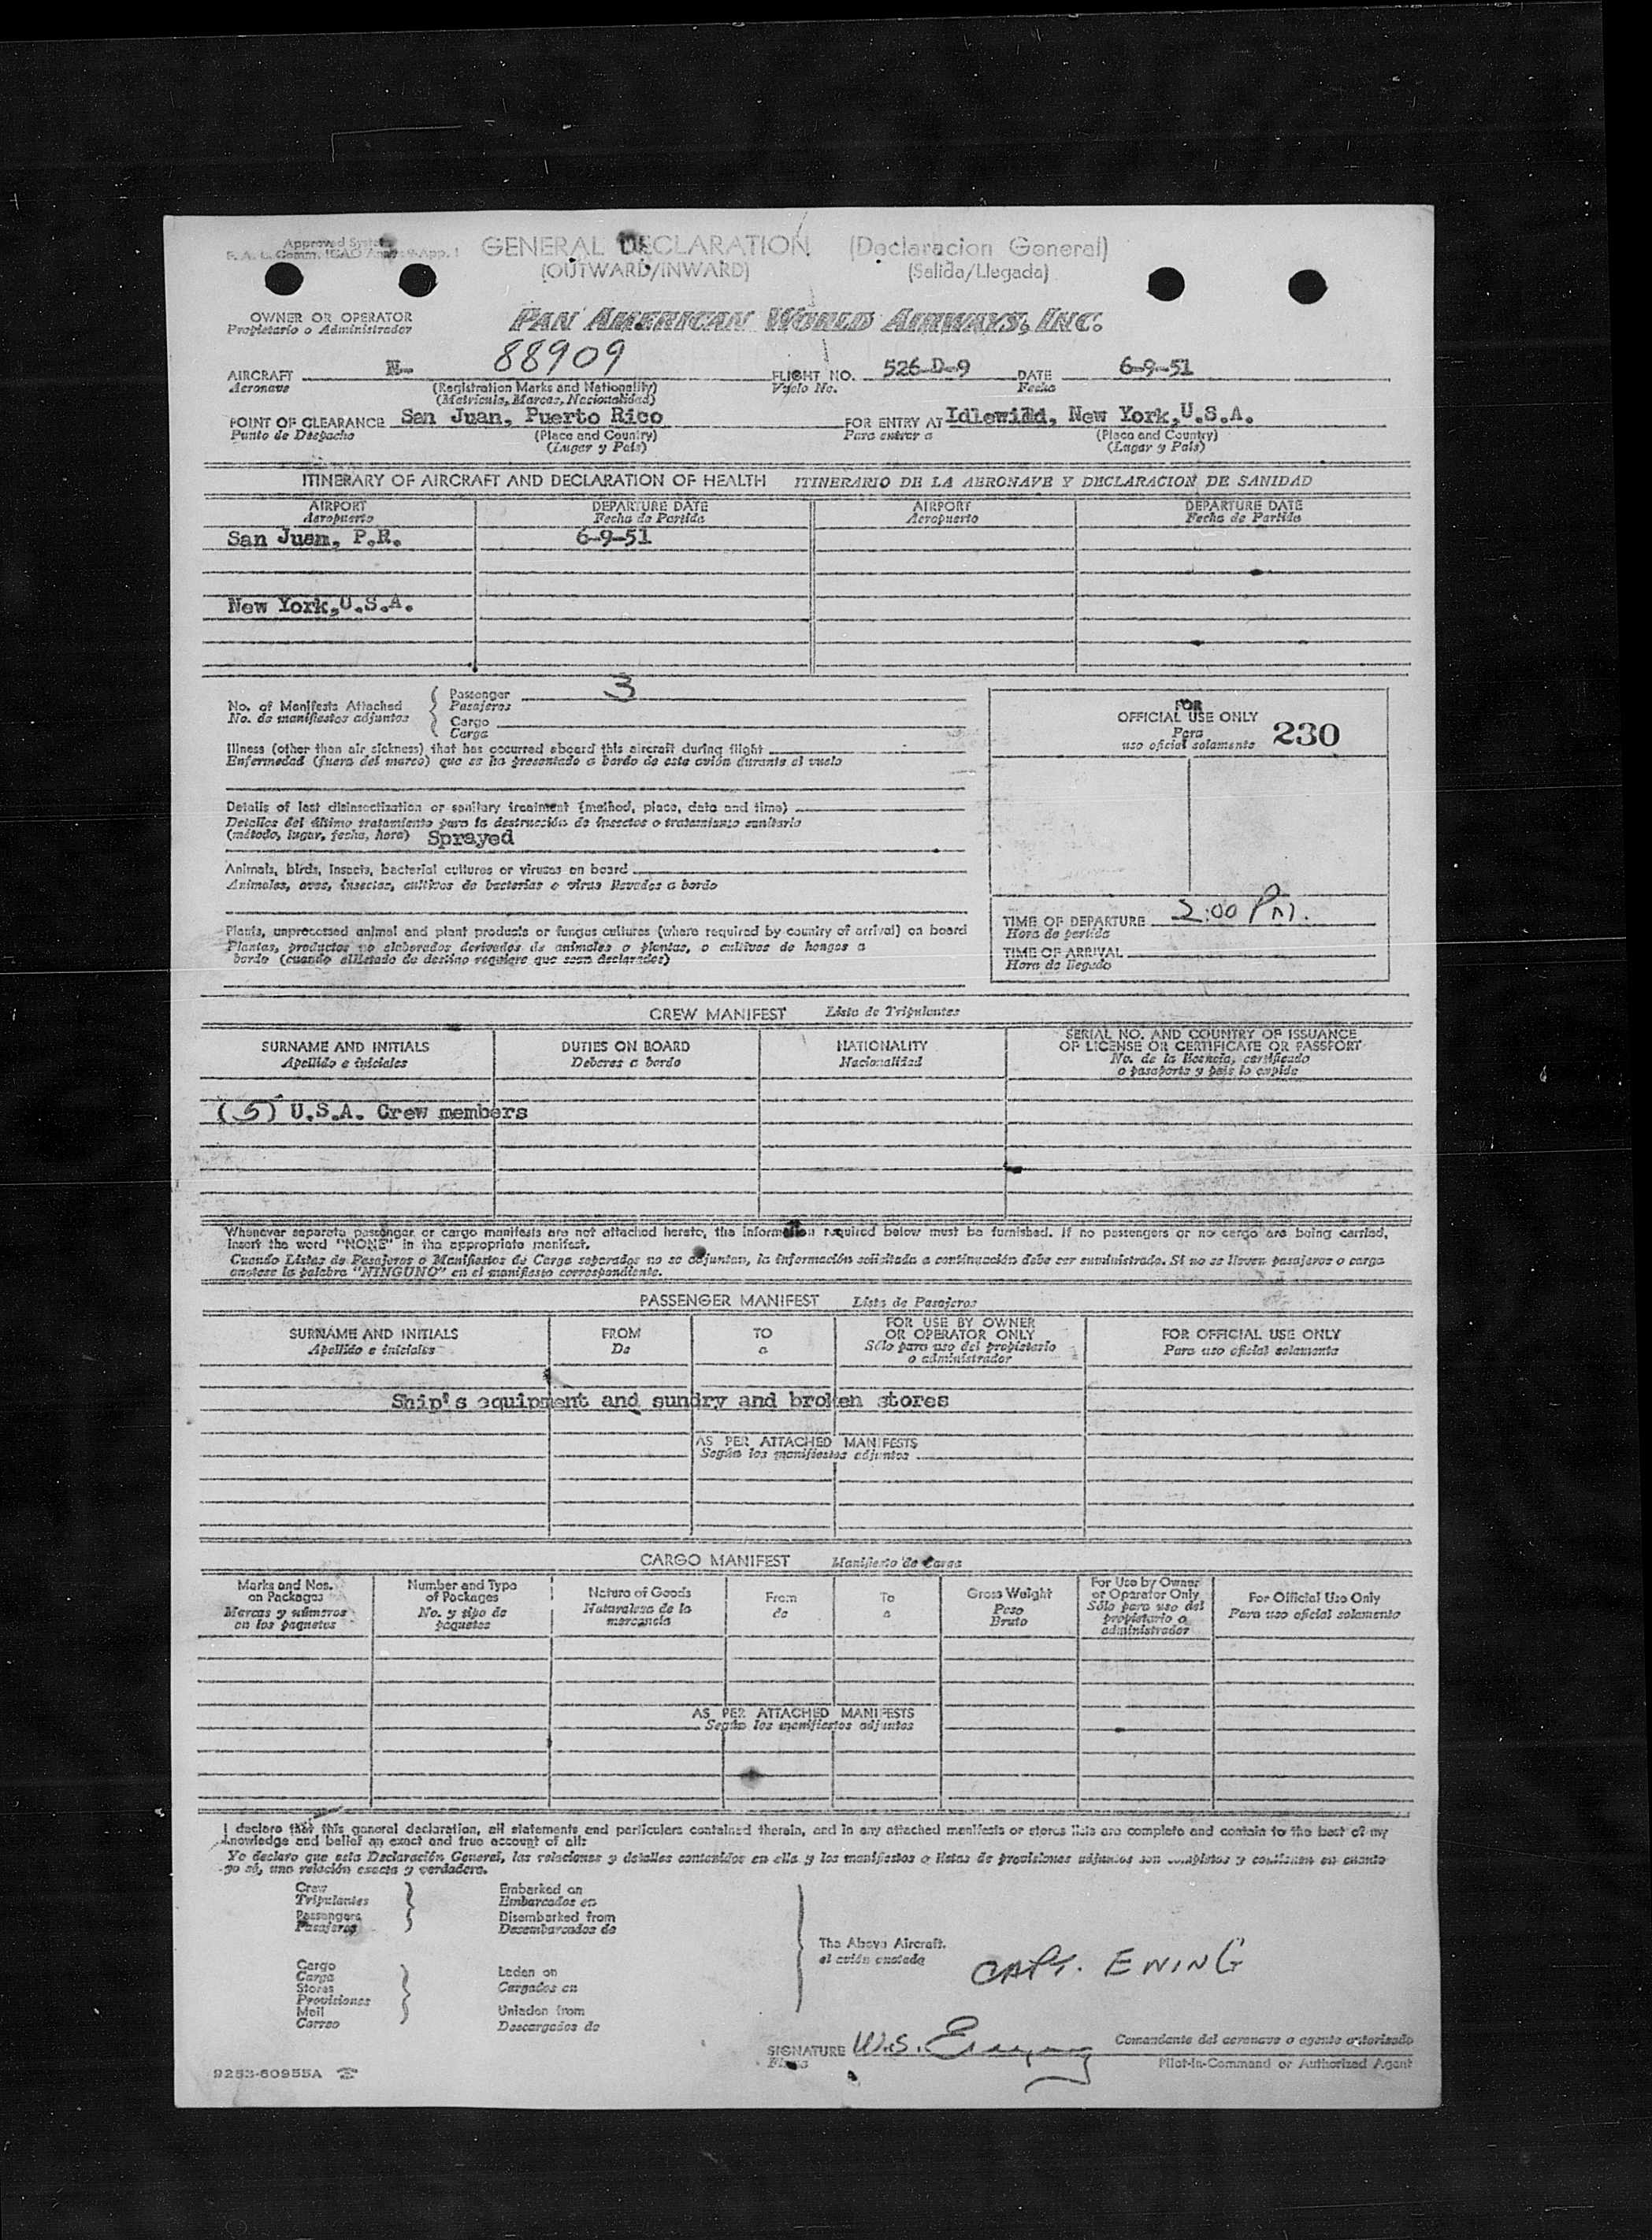 Approved System
F. A. L. Comm. ICAO Annex 9-App. 1
GENERAL DECLARATION (Declaracion General)
(OUTWARD/INWARD) (Salida/Llegada)
OWNER OR OPERATOR
Propietario o Administrador
PAN AMERICAN WORLD AIRWAYS, INC.
AIRCRAFT N- 88909 FLIGHT NO. 526-D-9 DATE 6-9-51
Aeronave (Registration Marks and Nationality) Vuelo No. Fecha
(Matricula, Marcas, Nacionalidad)
POINT OF CLEARANCE San Juan, Puerto Rico FOR ENTRY AT Idlewild, New York, U.S.A.
Punto de Despacho (Place and Country) Para entrar a (Place and Country)
(Lugar y Pais) (Lugar y Pais)
ITINERARY OF AIRCRAFT AND DECLARATION OF HEALTH ITINERARIO DE LA AERONAVE Y DECLARACION DE SANIDAD
AIRPORT DEPARTURE DATE AIRPORT DEPARTURE DATE
Aeropuerto Fecha de Partida Aeropuerto Fecha de Partida
San Juan, P.R. 6-9-51
New York, U.S.A.
No. of Manifests Attached
No. de manifiestos adjuntos
Passenger 3
Pasajeros
Cargo
Carga
Illness (other than air sickness) that has occurred aboard this aircraft during flight
Enfermedad (fuera del mareo) que se ha presentado a bordo de este avión durante el vuelo
Details of last disinsectization or sanitary treatment (method, place, date and time)
Detalles del último tratamiento para la destrucción de insectos o tratamiento sanitario
(método, lugar, fecha, hora) Sprayed
Animals, birds, insects, bacterial cultures or viruses on board
Animales, aves, insectos, cultivos de bacterias o virus llevados a bordo
Plants, unprocessed animal and plant products or fungus cultures (where required by country of arrival) on board
Plantas, productos no elaborados derivados de animales o plantas, o cultivos de hongos a
bordo (cuando el Estado de destino requiere que sean declarados)
FOR
OFFICIAL USE ONLY
Para
uso oficial solamente
230
TIME OF DEPARTURE 2:00 PM.
Hora de partida
TIME OF ARRIVAL
Hora de llegada
CREW MANIFEST Lista de Tripulantes
SURNAME AND INITIALS DUTIES ON BOARD NATIONALITY SERIAL NO. AND COUNTRY OF ISSUANCE
OF LICENSE OR CERTIFICATE OR PASSPORT
Apellido e iniciales Deberes a bordo Nacionalidad No. de la licencia, certificado
o pasaporte y pais lo expide
(5) U.S.A. Crew members
Whenever separate passenger or cargo manifests are not attached hereto, the information required below must be furnished. If no passengers or no cargo are being carried,
insert the word "NONE" in the appropriate manifest.
Cuando Listas de Pasajeros o Manifiestos de Carga separados no se adjuntan, la información solicitada a continuación debe ser suministrada. Si no se llevan pasajeros o carga
anotese la palabra "NINGUNO" en el manifiesto correspondiente.
PASSENGER MANIFEST Lista de Pasajeros
SURNAME AND INITIALS FROM TO FOR USE BY OWNER
OR OPERATOR ONLY FOR OFFICIAL USE ONLY
Apellido e iniciales De a Sólo para uso del propietario
o administrador Para uso oficial solamente
Ship's equipment and sundry and broken stores
AS PER ATTACHED MANIFESTS
Según los manifiestos adjuntos
CARGO MANIFEST Manifiesto de Carga
Marks and Nos.
on Packages
Marcas y números
en los paquetes
Number and Type
of Packages
No. y tipo de
paquetes
Nature of Goods
Naturaleza de la
mercancía
From
de
To
a
Gross Weight
Peso
Bruto
For Use by Owner
or Operator Only
Sólo para uso del
propietario o
administrador
For Official Use Only
Para uso oficial solamente
AS PER ATTACHED MANIFESTS
Según los manifiestos adjuntos
I declare that this general declaration, all statements and particulars contained therein, and in any attached manifests or stores lists are complete and contain to the best of my
knowledge and belief an exact and true account of all:
Yo declaro que esta Declaración General, las relaciones y detalles contenidos en ella y los manifiestos o listas de provisiones adjuntos son completos y contienen en cuanto
yo sé, una relación exacta y verdadera.
Crew
Tripulantes
Passengers
Pasajeros
Embarked on
Embarcados en
Disembarked from
Desembarcados de
Cargo
Carga
Stores
Provisiones
Mail
Correo
Laden on
Cargados en
Unladen from
Descargados de
The Above Aircraft.
el avión anotado
CAPT. EWING
SIGNATURE W.S. Ewing Comandante del aeronave o agente autorizado
Firma Pilot-in-Command or Authorized Agent
9253-60955A